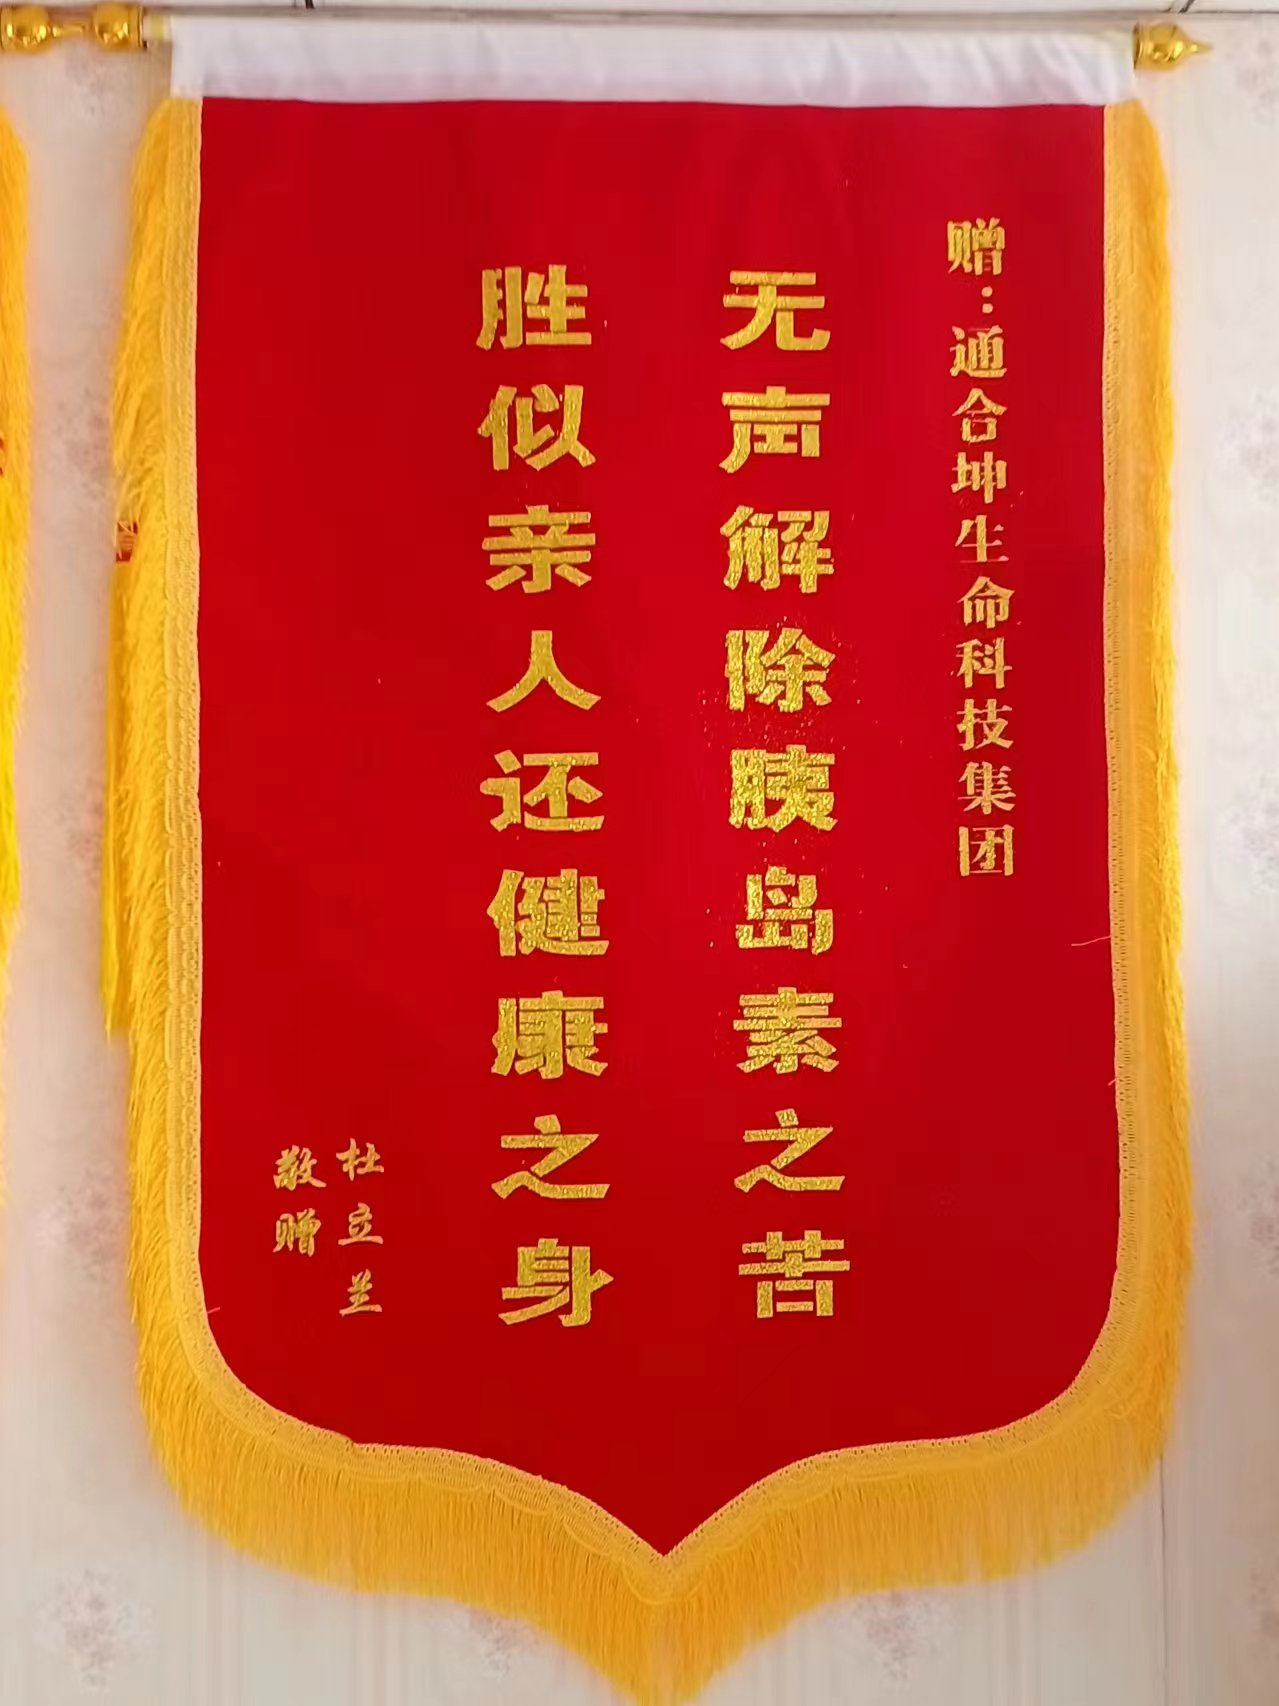 赠：通合坤生命科技集团
无声解除胰岛素之苦
胜似亲人还健康之身
杜立兰
敬赠